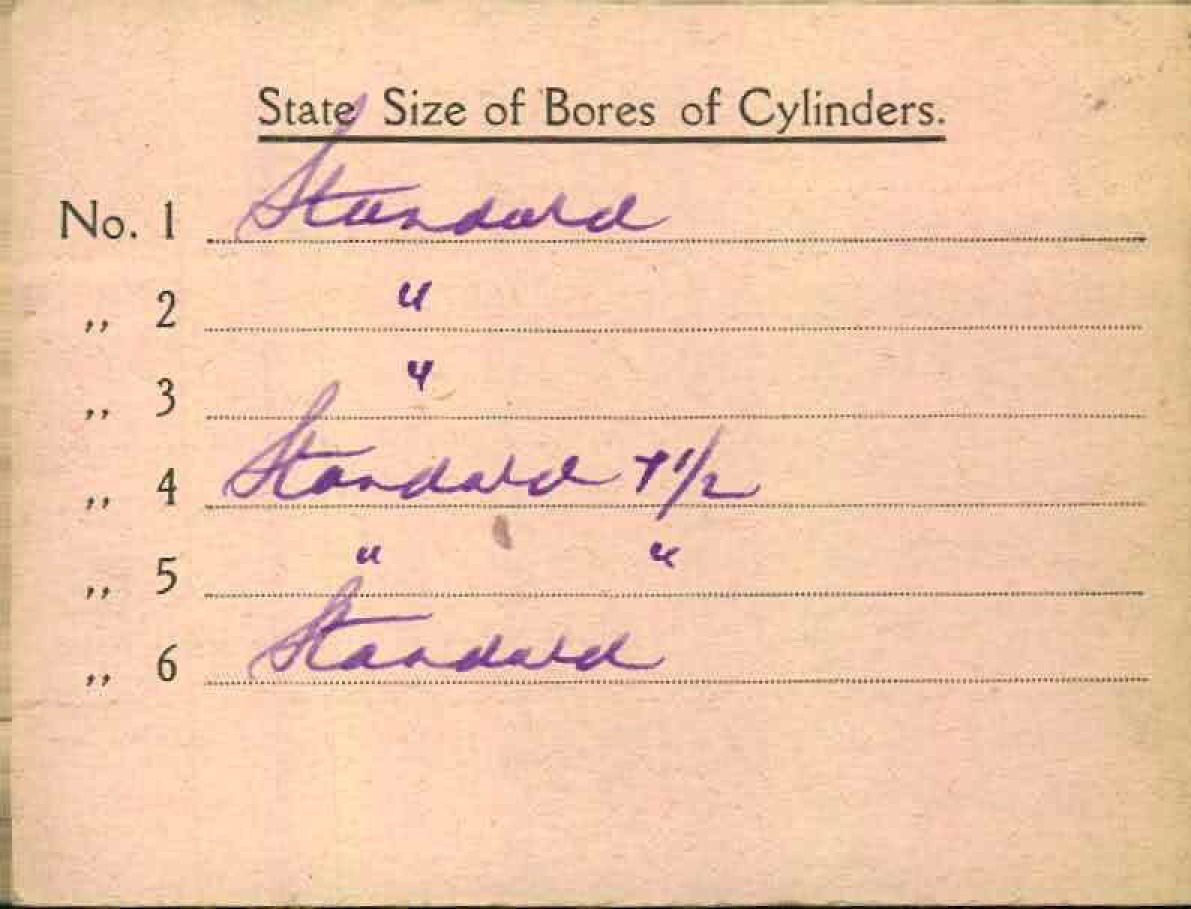 State Size of Bores of Cylinders.
No. 1 Standard
,, 2 "
,, 3 "
,, 4 Standard + 1/2
,, 5 " "
,, 6 Standard